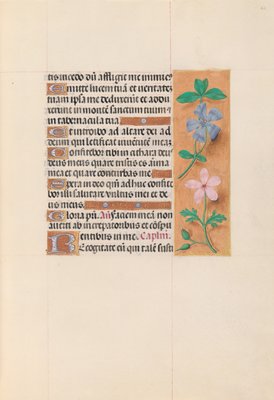 tis incedo dū affligit me inimic9
Emitte lucem tuā et ueritatē
tuam ipsa me deduxerūt et addu
xerunt in montē sanctum tuum et
in tabernacula tua
Et introibo ad altare dei ad
deum qui letificat iuuentutē meā
Confitebor tibi in cithara deus
deus meus quare tristis es aīma
mea et quare conturbas me
Spera in deo qm̄ adhuc confite
bor illi salutare vultus mei et de
us meus
Gloria pr̄i. Añ Faciem meā non
auerti ab increpatoribus et cōspu
entibus in me. Caplm̄
Recogitate eū qui talē susti